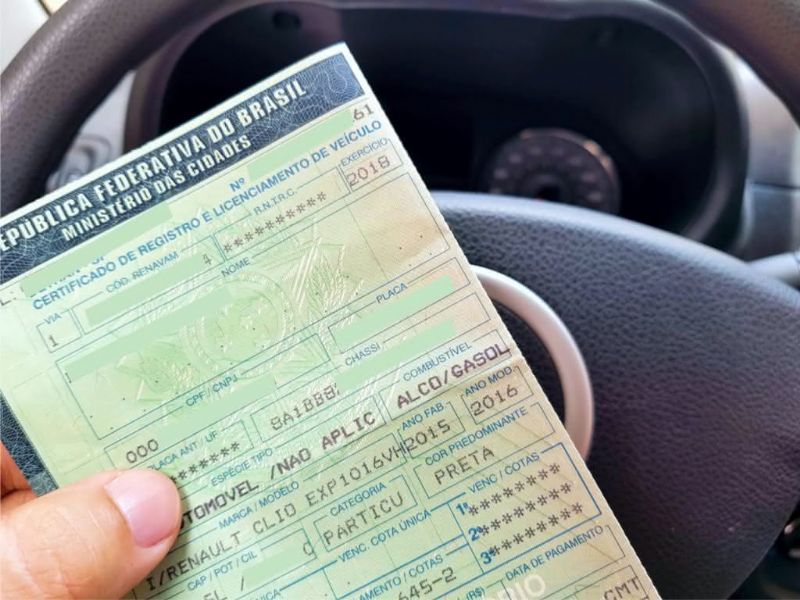 REPÚBLICA FEDERATIVA DO BRASIL
MINISTÉRIO DAS CIDADES
Nº 61
CERTIFICADO DE REGISTRO E LICENCIAMENTO DE VEÍCULO
VIA CÓD. RENAVAM R.N.T.R.C. EXERCÍCIO
1 4 ********** 2018
NOME
CPF / CNPJ PLACA
CHASSI
000 8A1BB8
PLACA ANT / UF ESPÉCIE TIPO COMBUSTÍVEL
******* AUTOMOVEL /NAO APLIC ALCO/GASOL
MARCA / MODELO ANO FAB. ANO MOD.
I/RENAULT CLIO EXP1016VH 2015 2016
CAP / POT / CIL CATEGORIA COR PREDOMINANTE
PARTICU PRETA
VENC. COTA ÚNICA VENC / COTAS
1ª ********
2ª ********
3ª ********
645-2
(R$) DATA DE PAGAMENTO